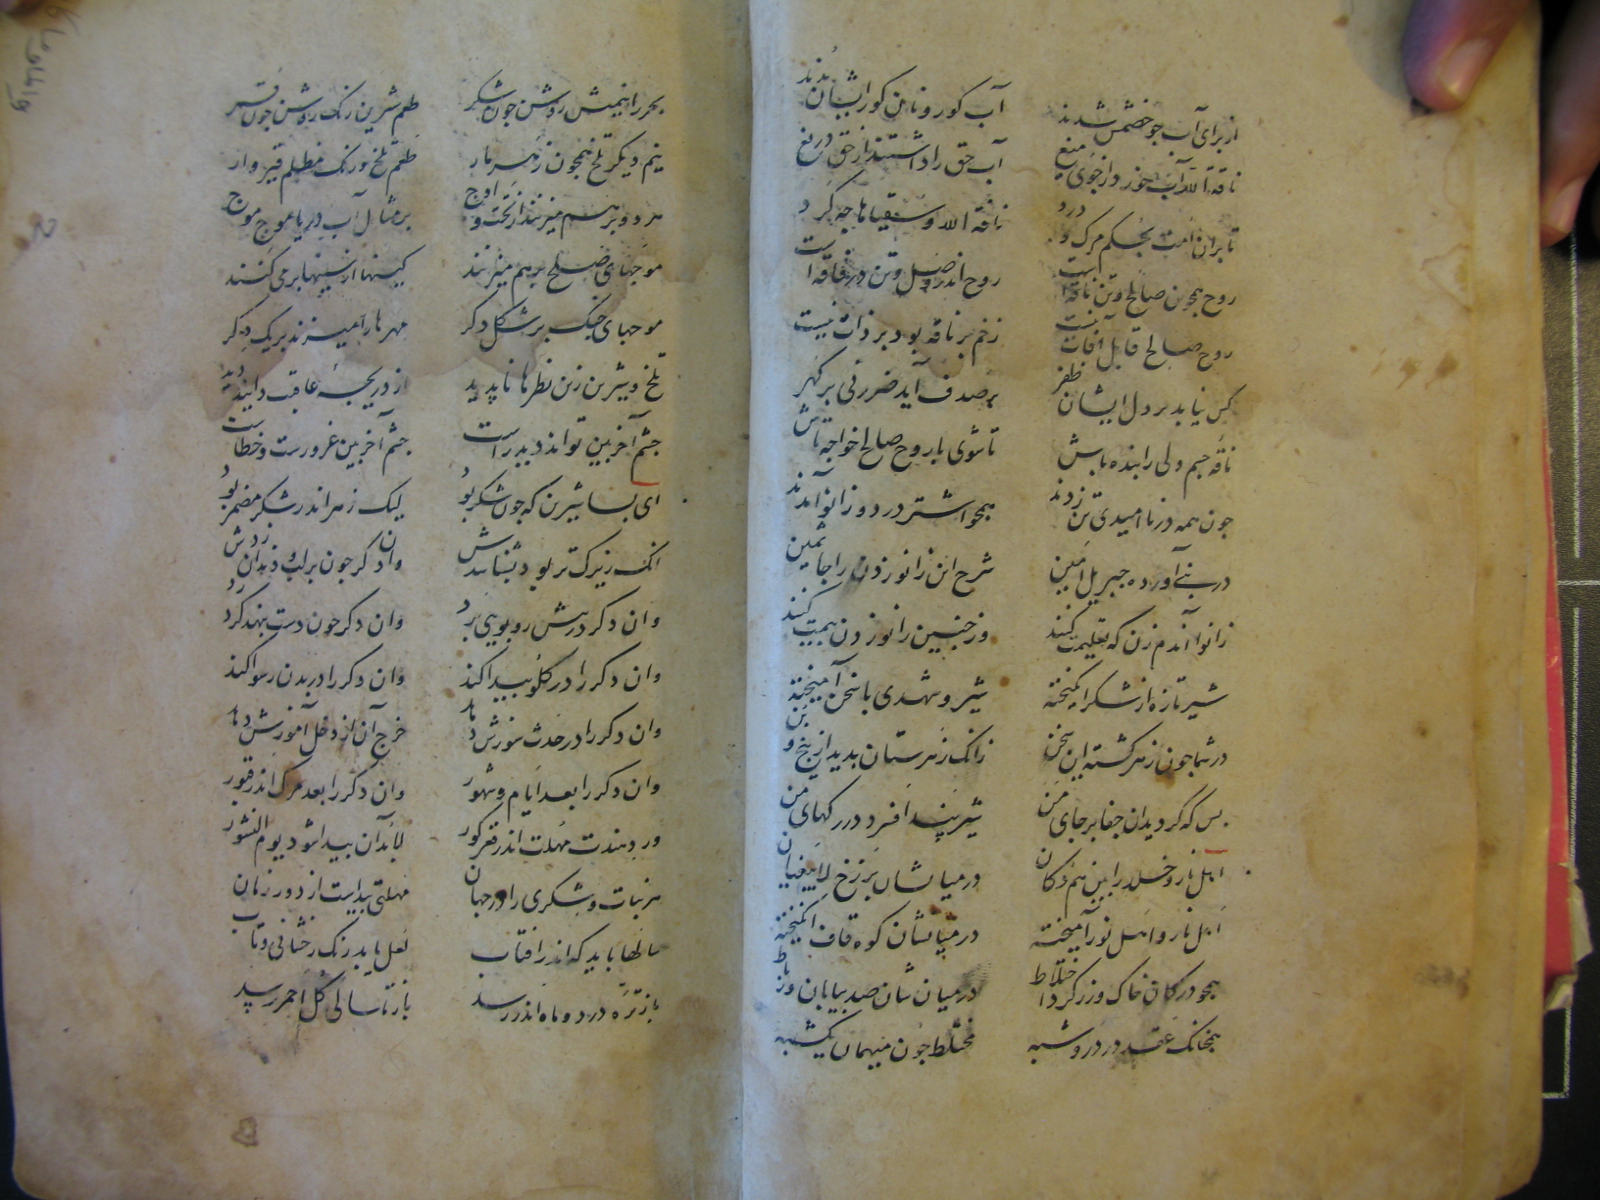 از برای آب جو خصمش شدند آب کور و نان کور ایشان بدند
ناقة الله آب خورد از جوی میغ آب حق را داشتند از حق دریغ
تا بران امت بحکم مرک و درد ناقة الله و سقیاها چه کرد
روح همچون صالح و تن ناقه است روح اندر وصل و تن در فاقه است
روح صالح قابل آفات نیست زخم بر ناقه بود بر ذات نیست
کس نیابد بر دل ایشان ظفر بر صدف آید ضرر نی بر کهر
ناقه جسم ولی را بنده باش تا شوی با روح صالح خواجه تاش
جون همه در ناامیدی تن زدند همجو اشتر در دو زانو آمدند
در نبی آورد جبریل امین شرح این زانو زدن را جاثمین
زانو آندم زن که تعلیمت کنند وز جنین زانو زدن بیمت کنند
شیر تازه از شکر انکیخته شیر و شهدی با سخن آمیخته
در شما جون زهر کشته این سخن زانک زهرستان بدید از بیخ و بن
بس که کردید از جفا بر جای من شیر پند افسرد در رکهای من
اهل نار و خلد را بین هم دکان در میانشان برزخ لا یبغیان
اهل نار و اهل نور آمیخته در میانشان کوه قاف انکیخته
همجو در کان خاک و زر کرد اختلاط در میانشان صد بیابان و رباط
همجنانک عقد در در و شبه مختلط جون میهمان یکشبه
بحر را نیمیش شیرین جون شکر طعم شیرین رنک روشن جون قمر
نیم دیکر تلخ همجون زهر مار طعم تلخ و رنک مظلم قیروار
هر دو بر هم میزنند از تحت و اوج بر مثال آب دریا موج موج
موجهای صلح بر هم میزنند کینها از سینها بر می کنند
موجهای جنک بر شکل دکر مهرها را میزند بر یک دکر
تلخ و شیرین زین نظرها ناپدید از دریچهٔ عاقبت دانند دید
جشم آخربین تواند دید راست جشم آخربین غرورست و خطاست
ای بسا شیرین که جون شکر بود لیک زهر اندر شکر مضمر بود
انک زیرک تر بود بشناسدش وان دکر جون بر لب و دندان زدش
وان دکر در پیش رو بویی برد وان دکر جون دست بنهد کرد رد
وان دکر را در کلو پیدا کند وان دکر را در بدن رسوا کند
وان دکر را در حدث سوزش دهد خرج آن از دخل آموزش دهد
وان دکر را بعد ایام و شهور وان دکر را بعد مرک اندر قبور
ور دهندت مهلت اندر قعر کور لابد آن پیدا شود یوم النشور
هر نبات و شکری را در جهان مهلتی پیداست از دور زمان
سالها باید که اندر افتاب لعل یابد رنک و رخشانی و تاب
باز تره در دو ماه اندر رسد باز تا سالی کل احمر رسد